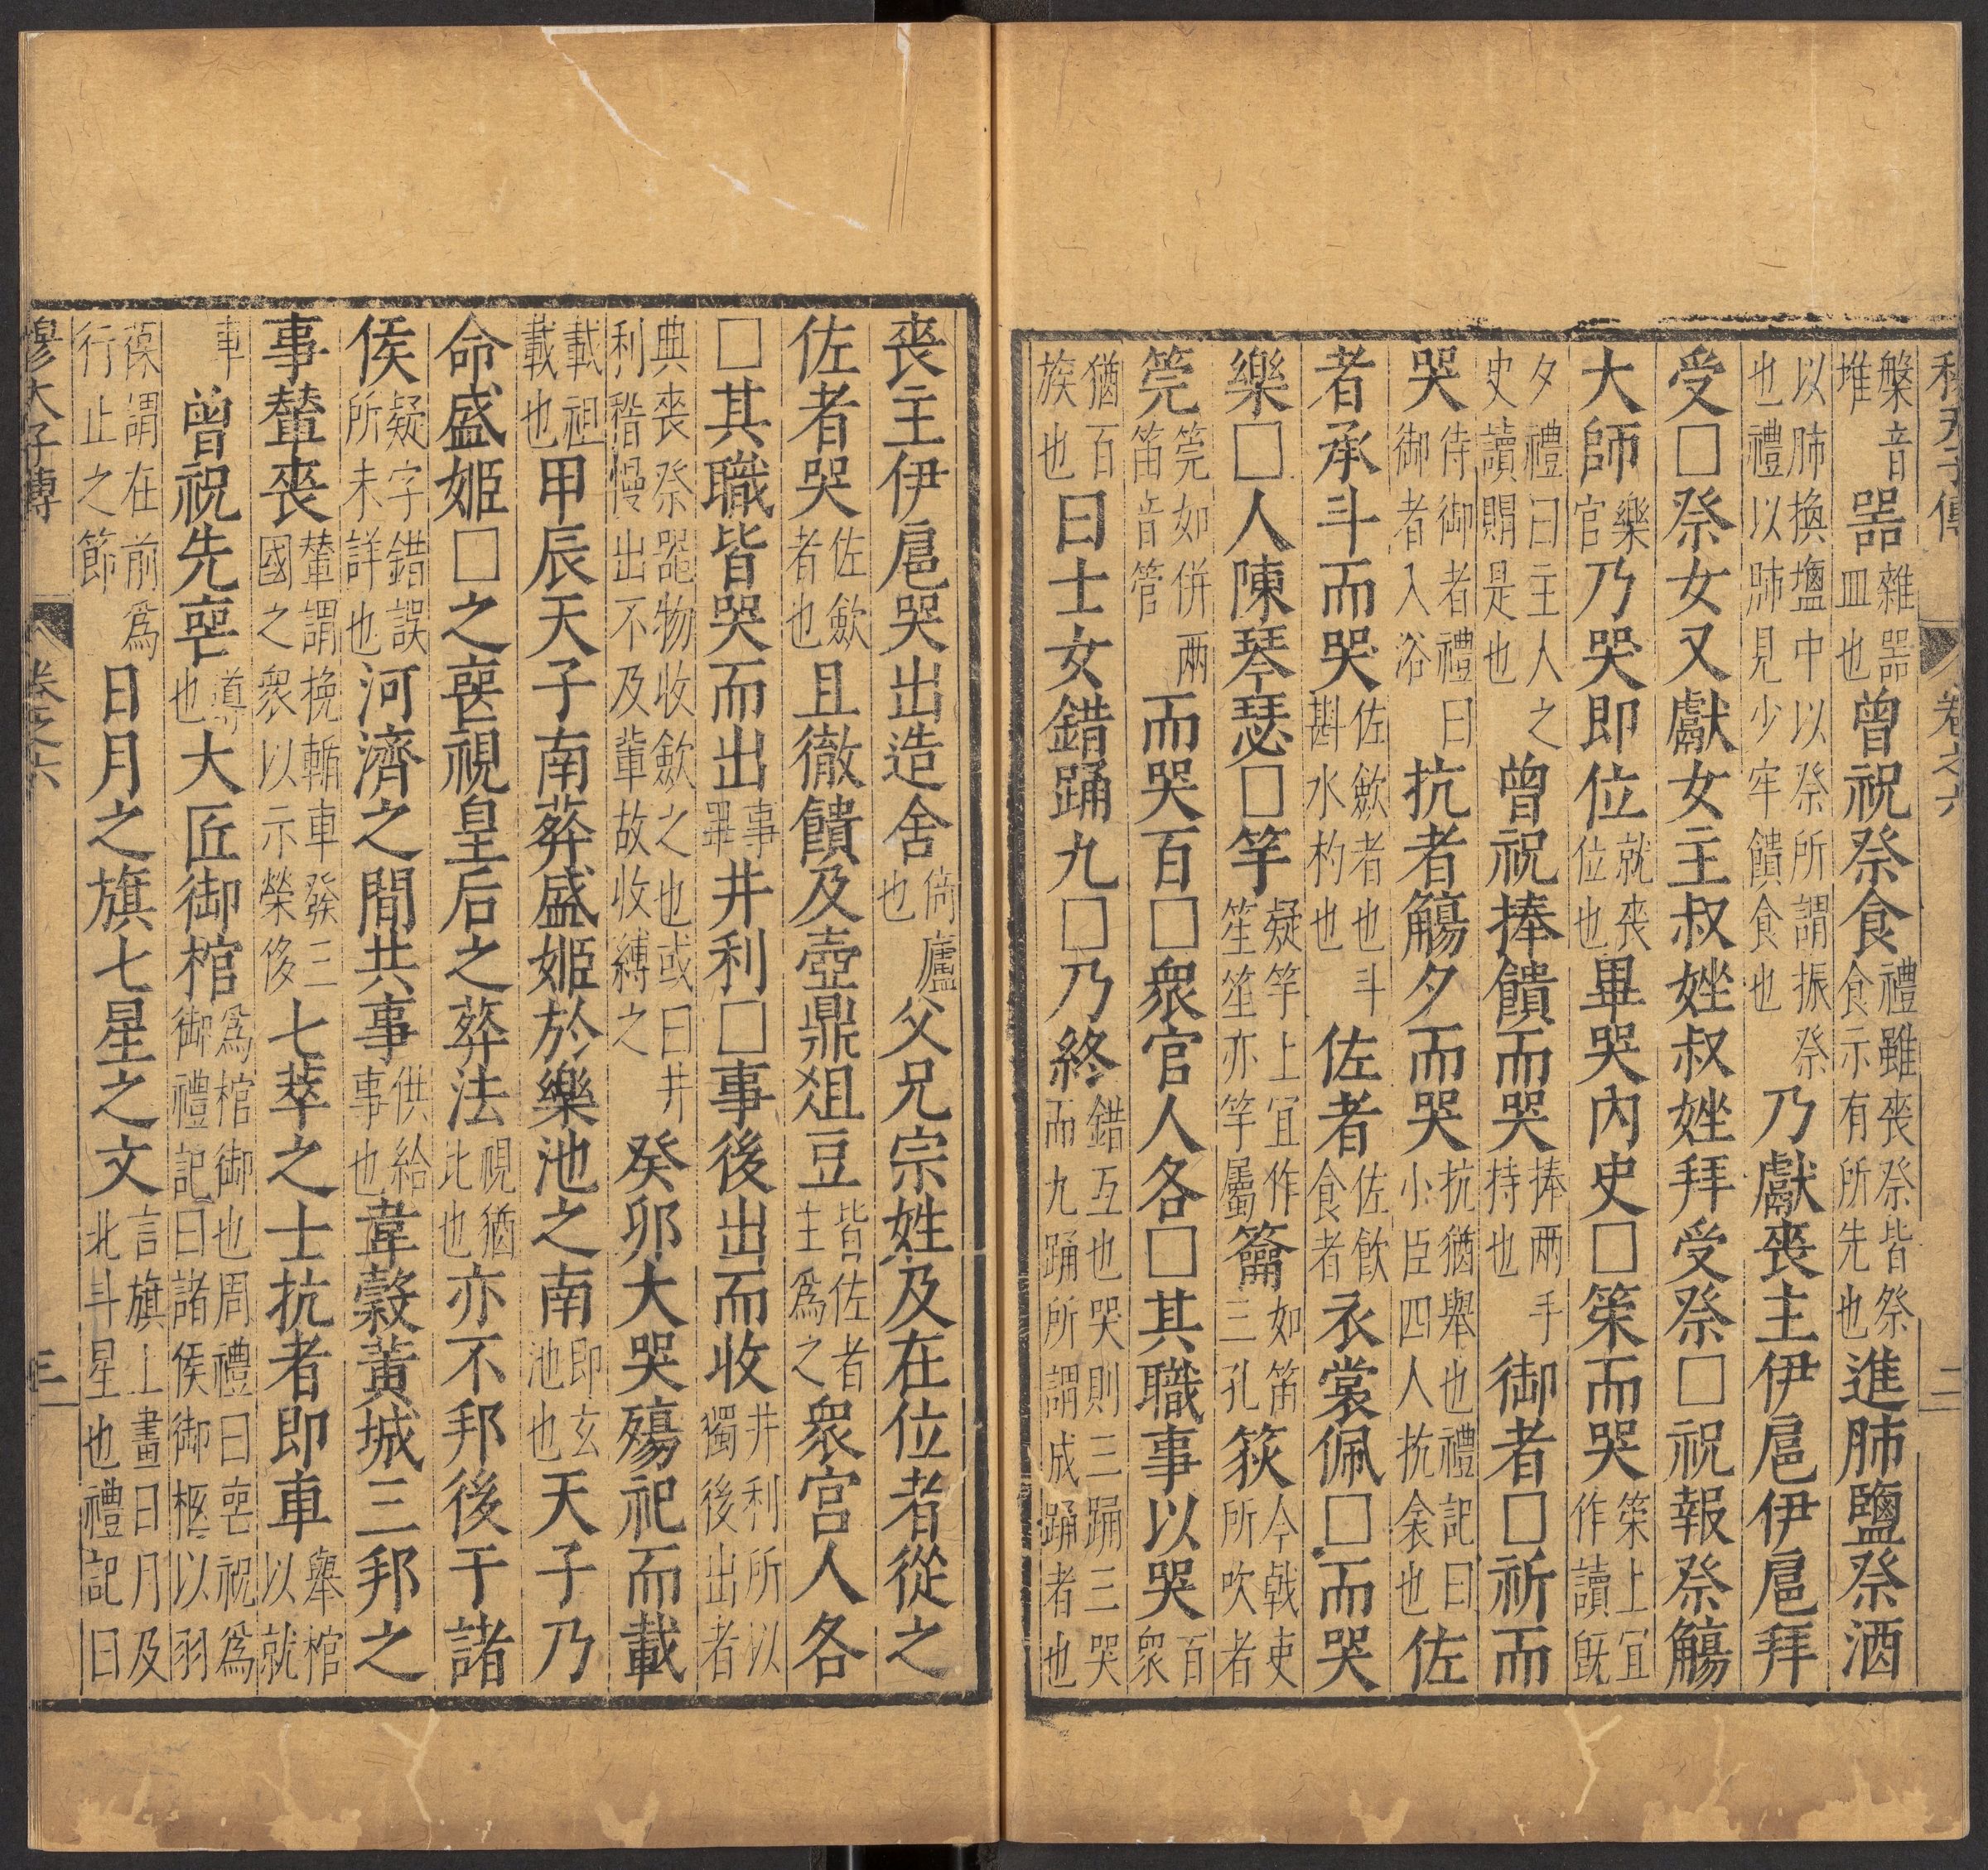 穆天子傳 卷之六 二
槃音堆噐雜噐皿也曾祝祭食禮雖喪祭皆祭食示有所先也進肺鹽祭酒
以肺換塩中以祭所謂振祭也禮以肺見少牢饋食也乃獻喪主伊扈伊扈拜
受□祭女又獻女主叔姪叔姪拜受祭□祝報祭觴
大師樂官乃哭即位就喪位也畢哭內史□策而哭策上宜作讀既
夕禮曰主人之史讀賵是也曾祝捧饋而哭捧兩手持也御者□祈而
哭侍御者禮曰御者入浴抗者觴夕而哭抗猶舉也禮記曰小臣四人抗衾也佐
者承斗而哭佐歛者也斗斟水杓也佐者佐飲食者衣裳佩□而哭
樂□人陳琴瑟□竽疑竽上宜作笙笙亦竽屬籥如笛三孔篍今戟吏所吹者
筦筦如併兩笛音管而哭百□衆官人各□其職事以哭百衆
猶百族也曰士女錯踊九□乃終錯互也哭則三踊三哭而九踊所謂成踊者也
喪主伊扈哭出造舍倚廬也父兄宗姓及在位者從之
佐者哭佐歛者也且徹饋及壺鼎俎豆皆佐者主爲之衆宮人各
□其職皆哭而出事畢井利□事後出而收井利所以獨後出者
典喪祭噐物收歛之也或曰井利稽慢出不及輩故收縛之癸卯大哭殤祀而載
載祖載也甲辰天子南葬盛姬於樂池之南即玄池也天子乃
命盛姬□之喪視皇后之葬法視猶比也亦不邦後于諸
侯疑字錯誤所未詳也河濟之間共事供給事也韋穀黃城三邦之
事輦喪輦謂挽輀車發三國之衆以示榮侈七萃之士抗者即車舉棺以就
車曾祝先喪導也大匠御棺爲棺御也周禮曰喪祝爲御禮記曰諸侯御柩以羽
葆謂在前爲行止之節日月之旗七星之文言旗上畫日月及北斗星也禮記曰
穆天子傳 卷之六 三